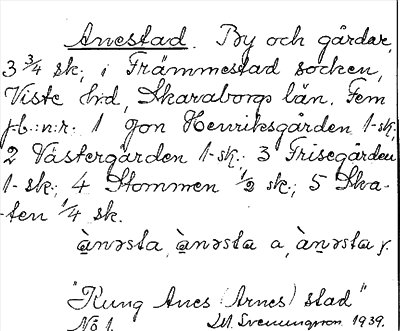 Anestad. By och gårdar,
3 3/4 sk., i Främmestad socken,
Viste hd, Skaraborgs län. Fem
jb.:n:r. 1 Jon Henriksgården 1 sk.,
2 Västergården 1 sk.; 3 Frisegården
1 sk.; 4 Stommen 1/2 sk.; 5 Ska-
ten 1/4 sk.
ànəsta, ànəsta a, ànəsta f.
"Kung Anes (Arnes) stad"
No 1. 1939.